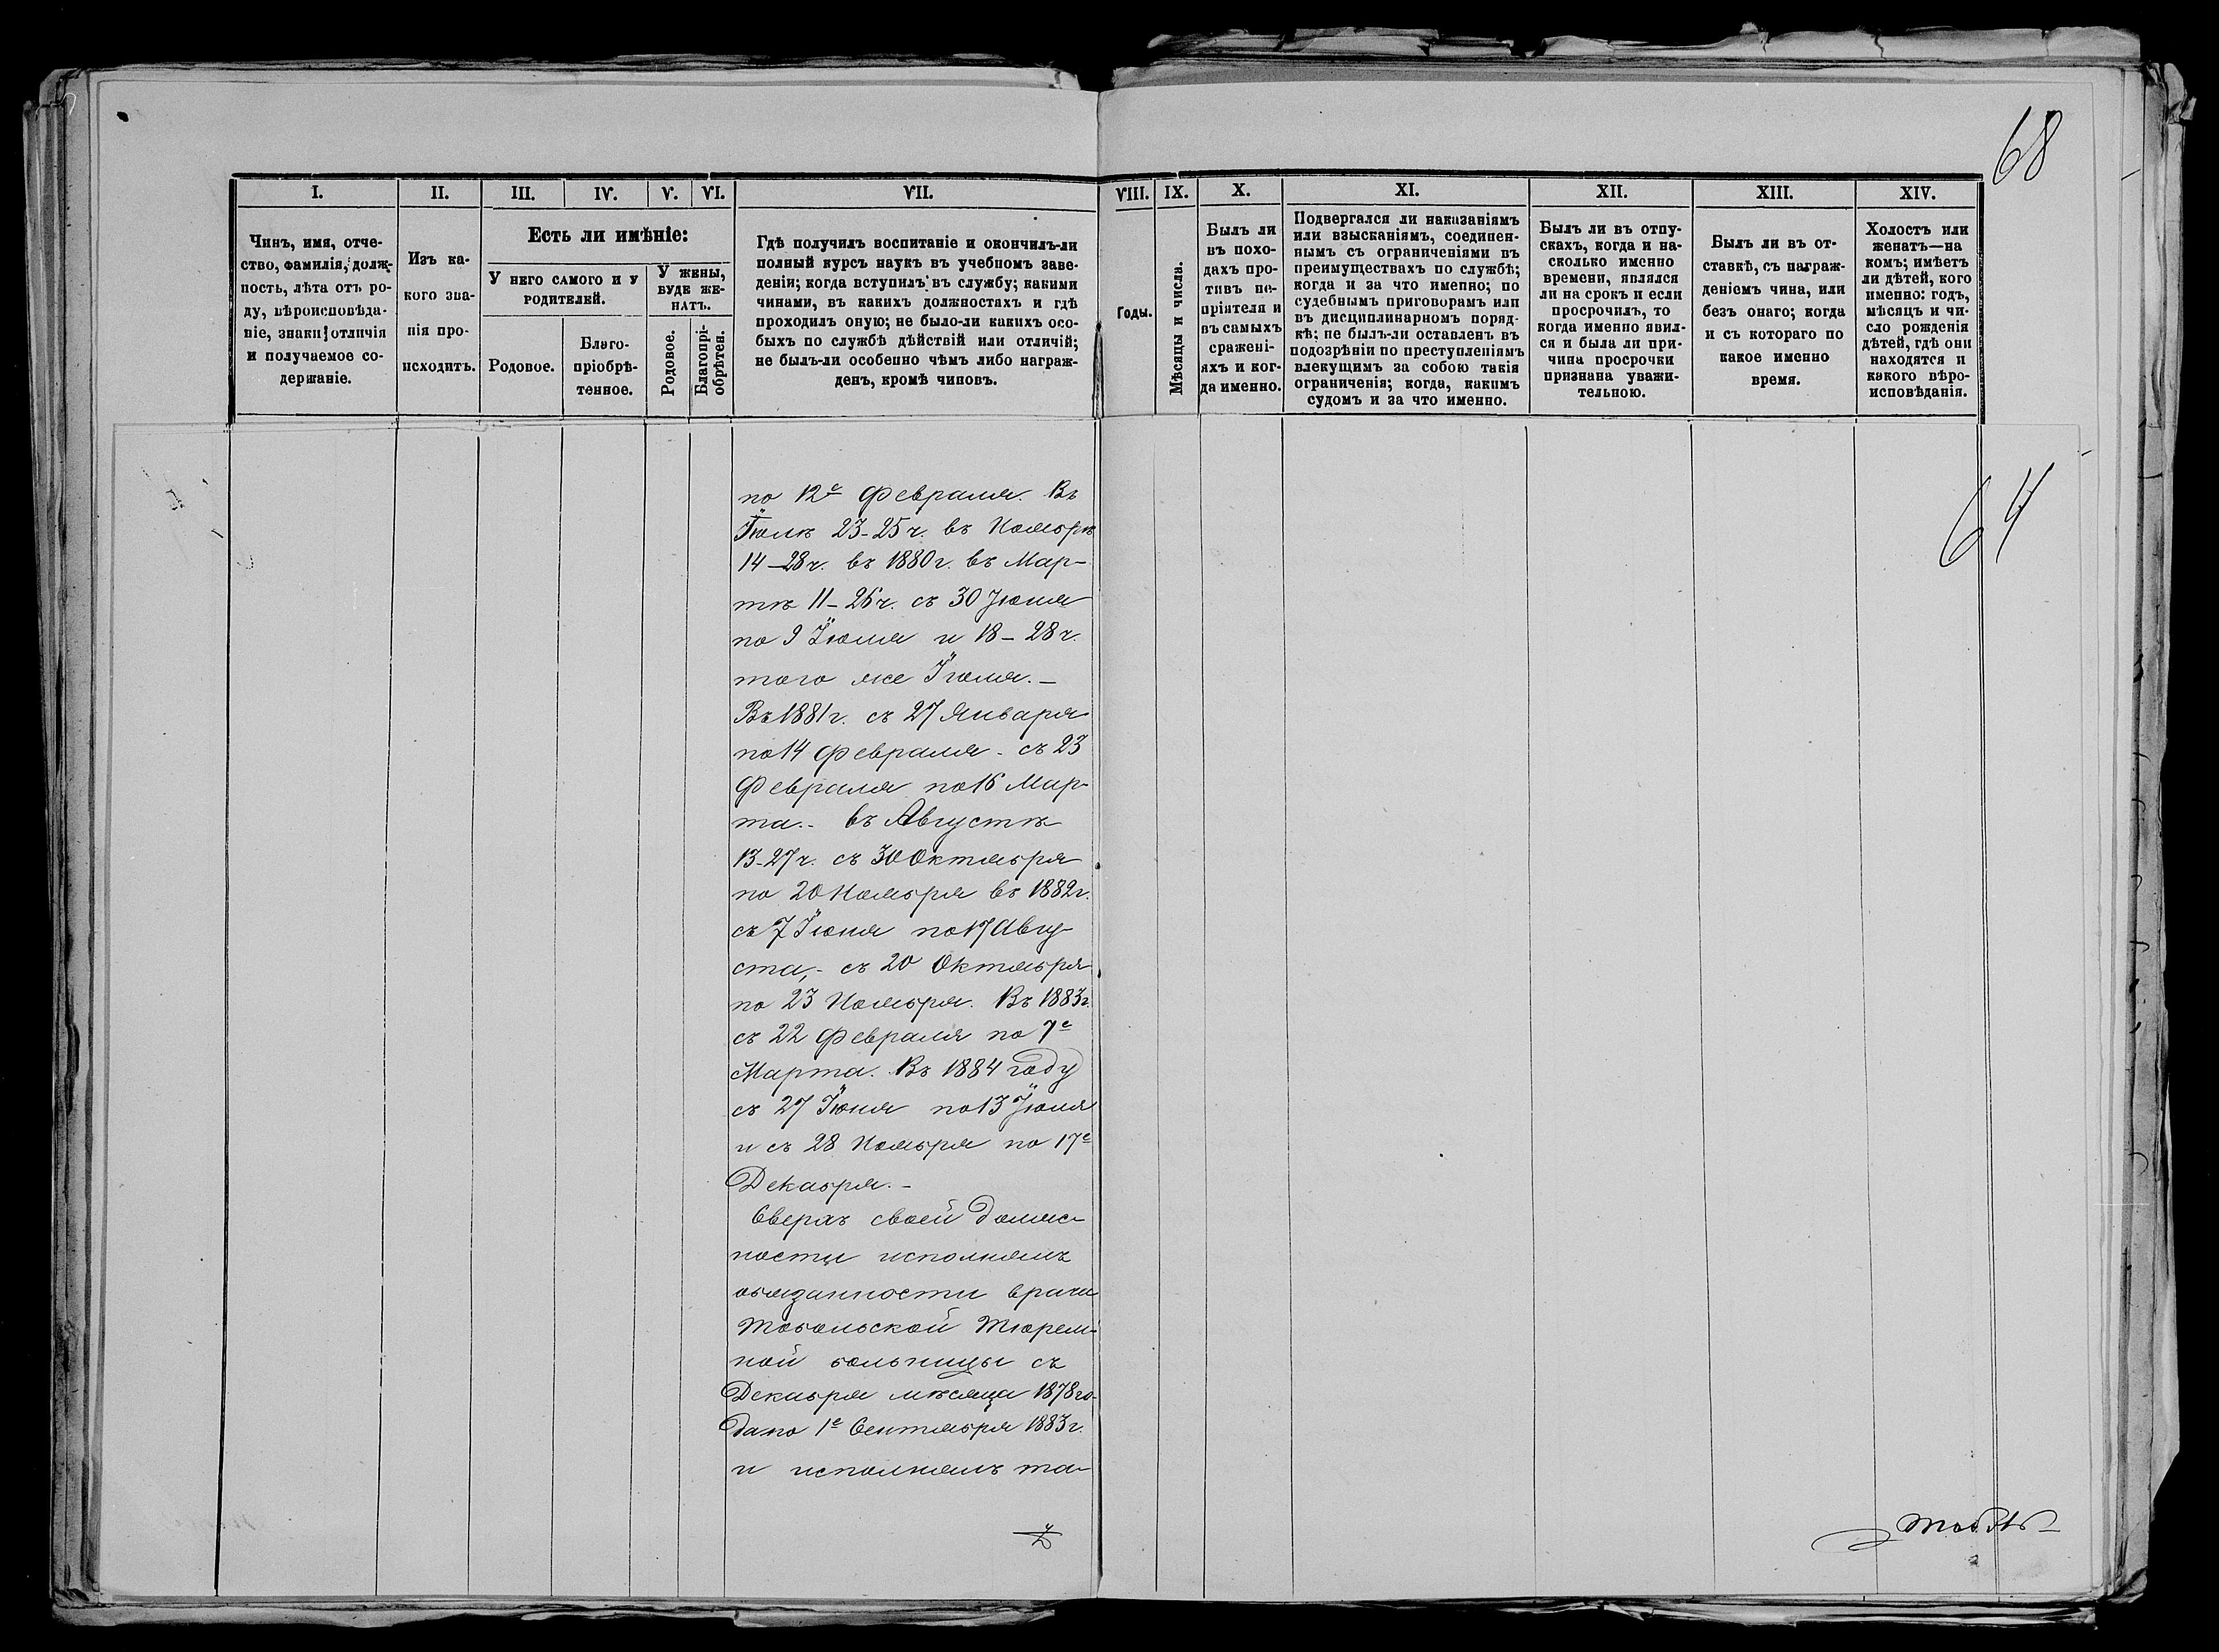 68
I.
II.
III.
IV.
V.
VI.
VII.
VIII.
IX.
X.
XI.
XII.
XIII.
XIV.
Чинъ, имя, отче-
ство, фамилія, долж-
ность, лѣта отъ ро-
ду, вѣроисповѣда-
ніе, знаки отличія
и получаемое со-
держаніе.
Изъ ка-
кого зва-
нія про-
исходитъ.
Есть ли имѣніе:
У него самого и у
родителей.
Родовое.
Благо-
пріобрѣ-
тенное.
У жены,
буде же-
натъ.
Родовое.
Благопрі-
обрѣтен.
Гдѣ получилъ воспитаніе и окончилъ-ли
полный курсъ наукъ въ учебномъ заве-
деніи; когда вступилъ въ службу; какими
чинами, въ какихъ должностяхъ и гдѣ
проходилъ оную; не было-ли какихъ осо-
быхъ по службѣ дѣйствій или отличій;
не былъ-ли особенно чѣмъ либо награж-
денъ, кромѣ чиновъ.
Годы.
Мѣсяцы и числа.
Былъ ли
въ похо-
дахъ про-
тивъ не-
пріятеля и
въ самыхъ
сражені-
яхъ и ког-
да именно.
Подвергался ли наказаніямъ
или взысканіямъ, соединен-
нымъ съ ограниченіями въ
преимуществахъ по службѣ;
когда и за что именно; по
судебнымъ приговорамъ или
въ дисциплинарномъ поряд-
кѣ; не былъ-ли оставленъ въ
подозрѣніи по преступленіямъ
влекущимъ за собою такія
ограниченія; когда, какимъ
судомъ и за что именно.
Былъ ли въ отпу-
скахъ, когда и на-
сколько именно
времени, являлся
ли на срокъ и если
просрочилъ, то
когда именно явил-
ся и была ли при-
чина просрочки
признана уважи-
тельною.
Былъ ли въ от-
ставкѣ, съ награж-
деніемъ чина, или
безъ онаго; когда
и съ котораго по
какое именно
время.
Холостъ или
женатъ—на
комъ; имѣетъ
ли дѣтей, кого
именно: годъ,
мѣсяцъ и чи-
сло рожденія
дѣтей, гдѣ они
находятся и
какого вѣро-
исповѣданія.
по 12е Февраля. Въ
Іюлѣ 23-25 ч. въ Ноябрѣ
14-28 ч. въ 1880 г. въ Мар-
тѣ 11-26 ч. съ 30 Іюня
по 9 Іюля и 18-28 ч.
того же Іюля.-
Въ 1881 г. съ 27 Января
по 14 Февраля - съ 23
Февраля по 16 Мар-
та.- въ Августѣ
13-27 ч. съ 30 Октября
по 20 Ноября въ 1882 г.
съ 7 Іюня по 17 Авгу-
ста,- съ 20 Октября
по 23 Ноября. Въ 1883 г.
съ 22 Февраля по 7е
Марта. Въ 1884 году
съ 27 Іюня по 13 Іюля
и съ 28 Ноября по 17е
Декабря.-
Сверхъ своей долж-
ности исполнялъ
обязанности врача
Тобольской Тюрем-
ной больницы съ
Декабря мѣсяца 1878 го-
да по 1е Сентября 1883 г.
и исполнялъ та-
64